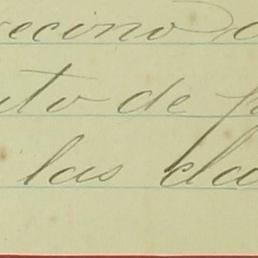 vecino d
to de p
las cla